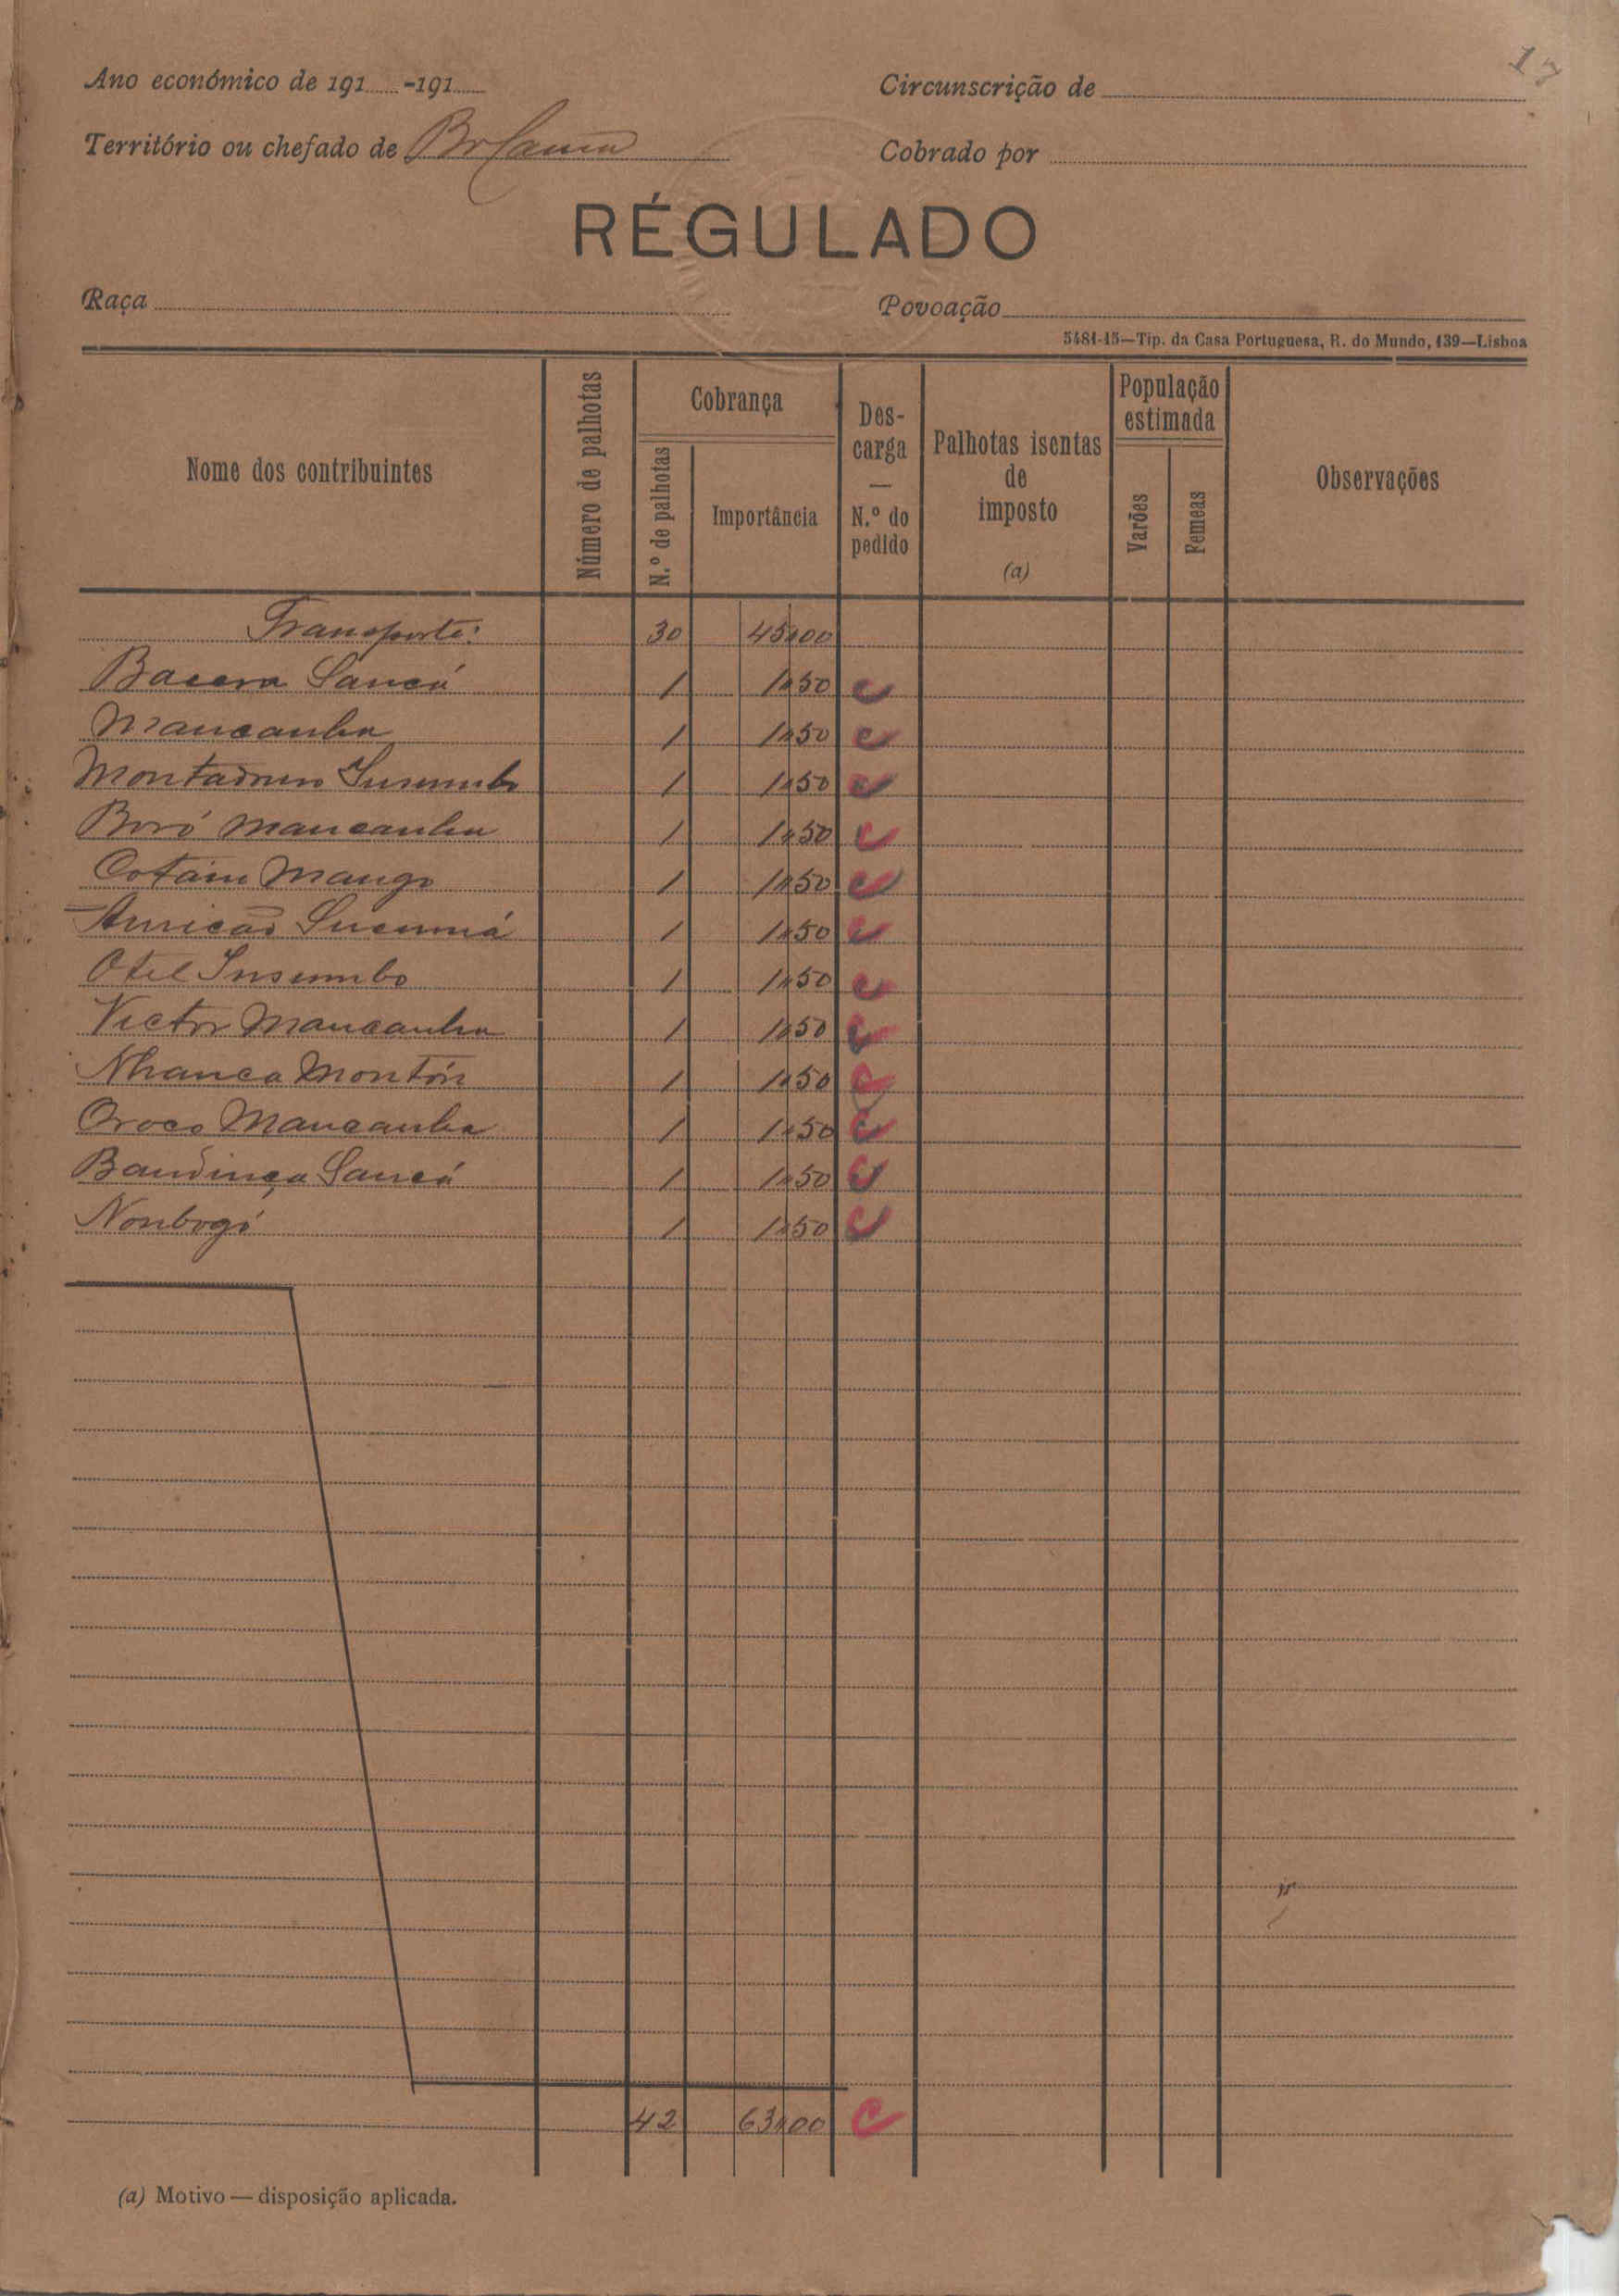 17
Ano económico de 191......-191......
Circunscrição de
Território ou chefado de
Cobrado por
RÉGULADO
Raça
Povoação
5481-15—Tip. da Casa Portuguesa, R. do Mundo, 139—Lisboa
Nome dos contribuintes
Número de palhotas
Cobrança
N.º de palhotas
Importância
Des-
carga
—
N.º do
pedido
Palhotas isentas
de
imposto
(a)
População
estimada
Varões
Femeas
Observações
Transporte: 30 45$00
Bacera Sancá 1 1$50 C
Mancanha 1 1$50 C
1 1$50 C
Boró Mancanha 1 1$50 C
Cotam Mango 1 1$50 C
1 1$50 C
Otel Insumbo 1 1$50 C
Victor Mancanha 1 1$50 C
Nhanca Montón 1 1$50 C
Oroco Mancanha 1 1$50 C
Bandinça Sancá 1 1$50 C
Nonbogó 1 1$50 C
42 63$00 C
(a) Motivo — disposição aplicada.